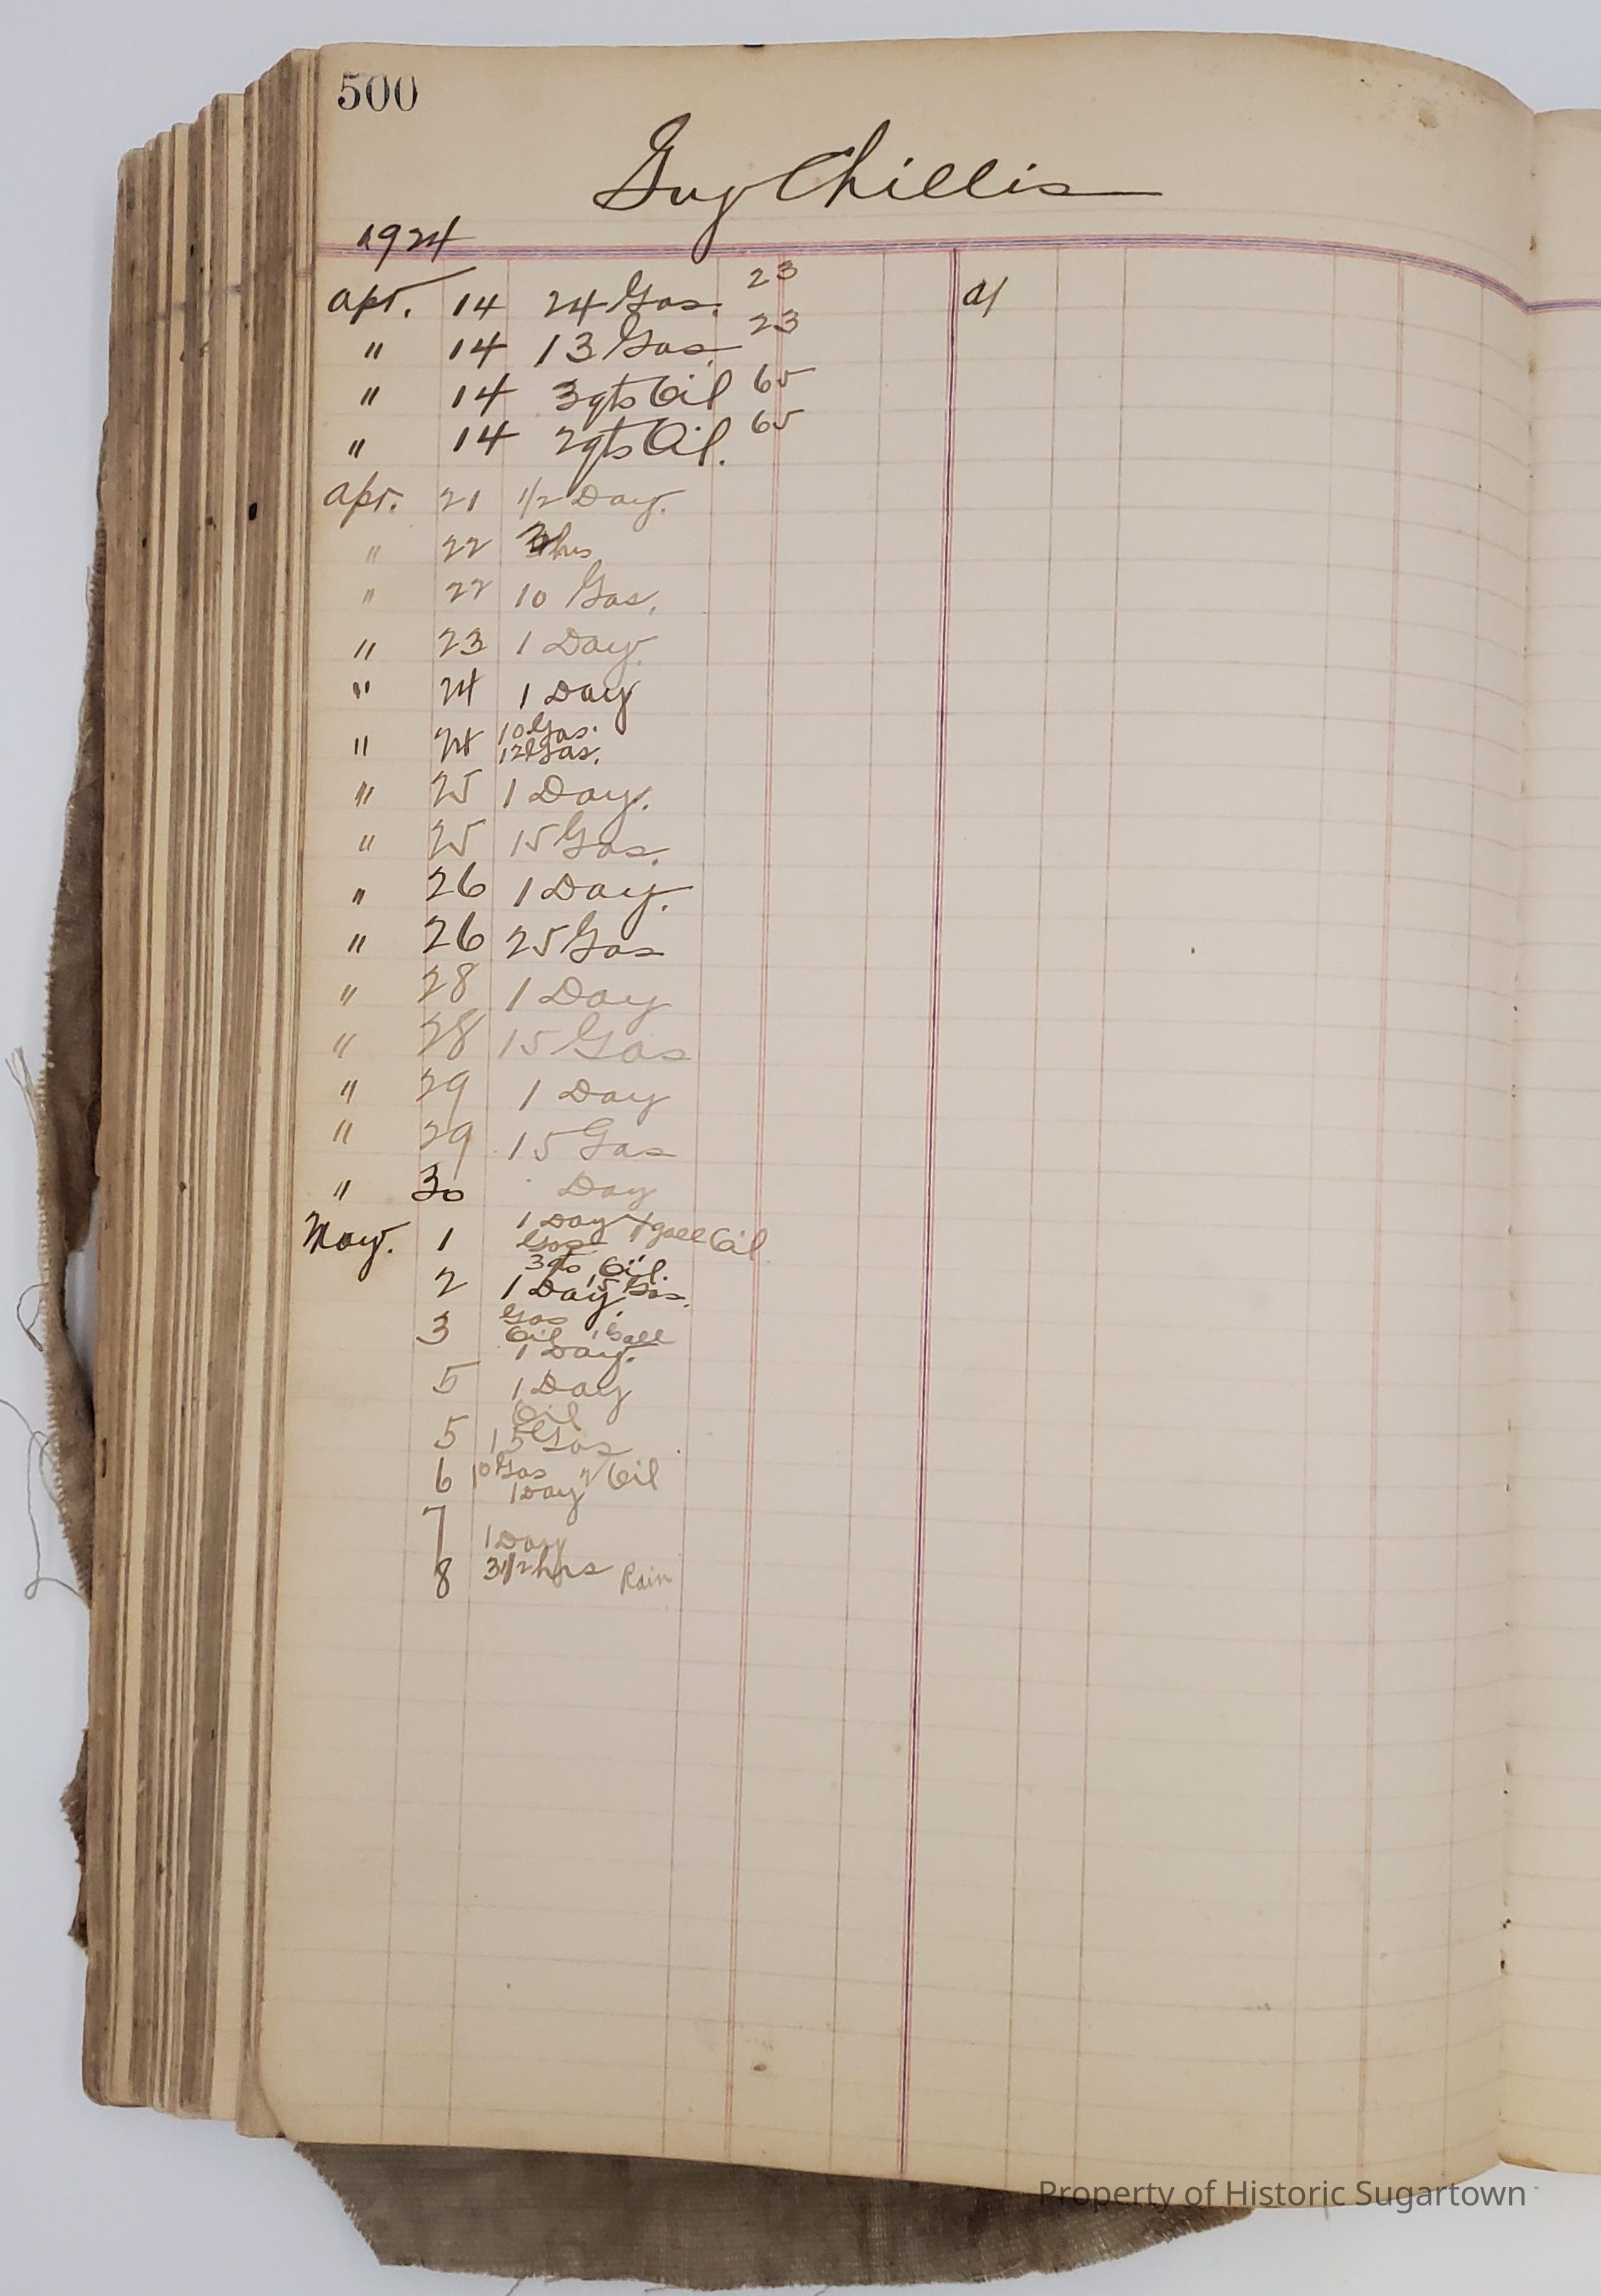 500
Guy Chillis
1924
Apr. 14 24 Gas. 23 a/
" 14 13 Gas. 23
" 14 3 qts Oil 65
" 14 2 qts Oil. 65
Apr. 21 1/2 Day.
" 22 hrs
" 22 10 Gas.
" 23 1 Day.
" 24 1 Day
" 24 10 Gas.
12 Gas.
" 25 1 Day.
" 25 15 Gas.
" 26 1 Day.
" 26 25 Gas
" 28 1 Day
" 28 15 Gas
" 29 1 Day
" 29 15 Gas
" 30 Day
May. 1 1 Day 1 gall Oil
Gas
3 qts Oil.
2 1 Day 15 Gas.
Gas
3 Oil 1 Gall
1 Day.
5 1 Day
Oil
5 15 Gas
6 10 Gas Oil
1 Day
7 1 Day
8 3 1/2 hrs Rain
Property of Historic Sugartown